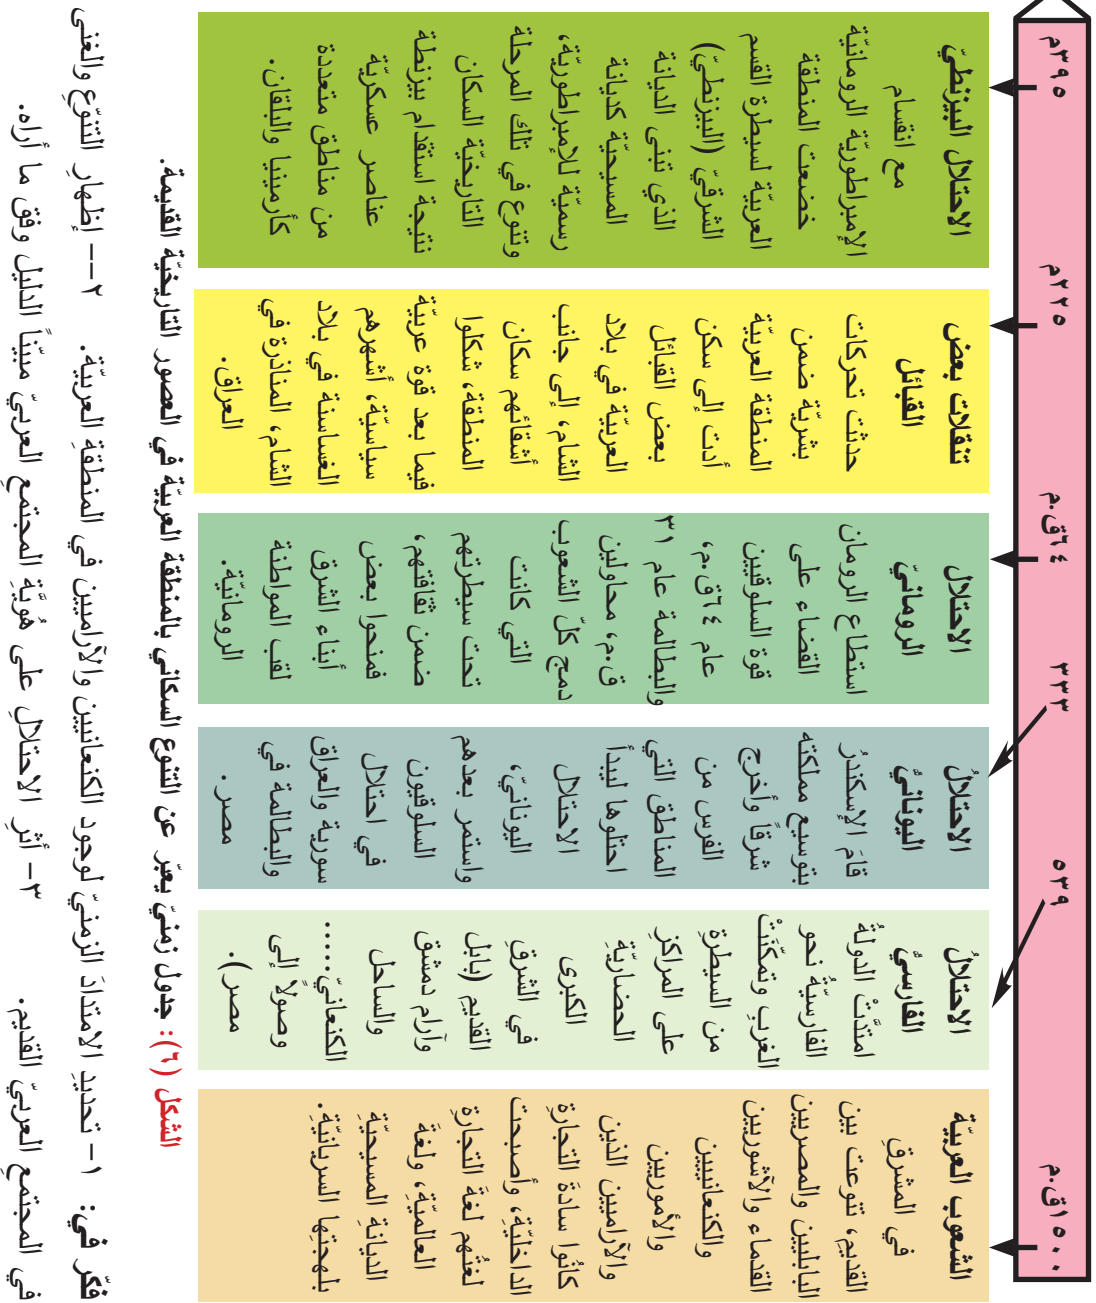 ١٥٠٠ق.م
٥٣٩
٣٣٣
٦٤ق.م
٢٢٥م
٣٩٥م
الشعوب العربيّة
في المشرقِ
القديمِ، تنوعت بين
البابليين والمصريين
القدماء والآشوريين
والكنعانيين
والأموريين
والآراميين الذين
كانُوا سادةَ التجارةِ
الداخليّةِ، وأصبحت
لغتُهم لغةَ التجارةِ
العالميّةِ، ولغةَ
الديانةِ المسيحيّةِ
بلهجتِها السريانيّةِ.
الاحتلالُ
الفارسيُّ
امتدَّتْ الدولةُ
الفارسيّةُ نحو
الغربِ وتمكّنتْ
من السيطرةِ
على المراكزِ
الحضاريّةِ
الكبرى
في الشرقِ
القديمِ (بابل
وآرام دمشق
والساحل
الكنعانيّ.....
وصولاً إلى
مصر).
الاحتلالُ
اليونانيُّ
قامَ الإسكندرُ
بتوسيع مملكته
شرقاً وأخرج
الفرس من
المناطق التي
احتلوها ليبدأ
الاحتلال
اليونانيّ،
واستمر بعدهم
السلوقيون
في احتلال
سورية والعراق
والبطالمة في
مصر.
الاحتلال
الرومانيّ
استطاع الرومان
القضاء على
قوة السلوقيين
عام ٦٤ق.م،
والبطالمة عام ٣١
ق.م، محاولين
دمج كلّ الشعوب
التي كانت
تحت سيطرتهم
ضمن ثقافتهم،
فمنحوا بعض
أبناء الشرق
لقب المواطنة
الرومانيّة.
تنقلات بعض
القبائل
حدثت تحركات
بشريّة ضمن
المنطقة العربيّة
أدت إلى سكن
بعض القبائل
العربيّة في بلاد
الشام، إلى جانب
أشقائهم سكان
المنطقة، شكلوا
فيما بعد قوة عربيّة
سياسيّة، أشهرهم
الغساسنة في بلاد
الشام، المناذرة في
العراق.
الاحتلال البيزنطيّ
مع انقسام
الإمبراطوريّة الرومانيّة
خضعت المنطقة
العربيّة لسيطرة القسم
الشرقيّ (البيزنطيّ)
الذي تبنى الديانة
المسيحيّة كديانة
رسميّة للإمبراطوريّة،
وتنوع في تلك المرحلة
التاريخيّة السكان
نتيجة استقدام بيزنطة
عناصر عسكريّة
من مناطق متعددة
كأرمينيا والبلقان.
الشكل (٦): جدول زمنيّ يعبّر عن التنوع السكاني بالمنطقة العربيّة في العصور التاريخيّة القديمة.
فكّر في: ١- تحديدِ الامتدادَ الزمنيّ لوجود الكنعانيين والآراميين في المنطقةِ العربيّة. ٢-- إظهارِ التنّوعِ والغنى
في المجتمعِ العربيّ القديم. ٣- أثرِ الاحتلالِ على هُويَّةِ المجتمعِ العربيّ مبيّناً الدليل وفق ما أراه.